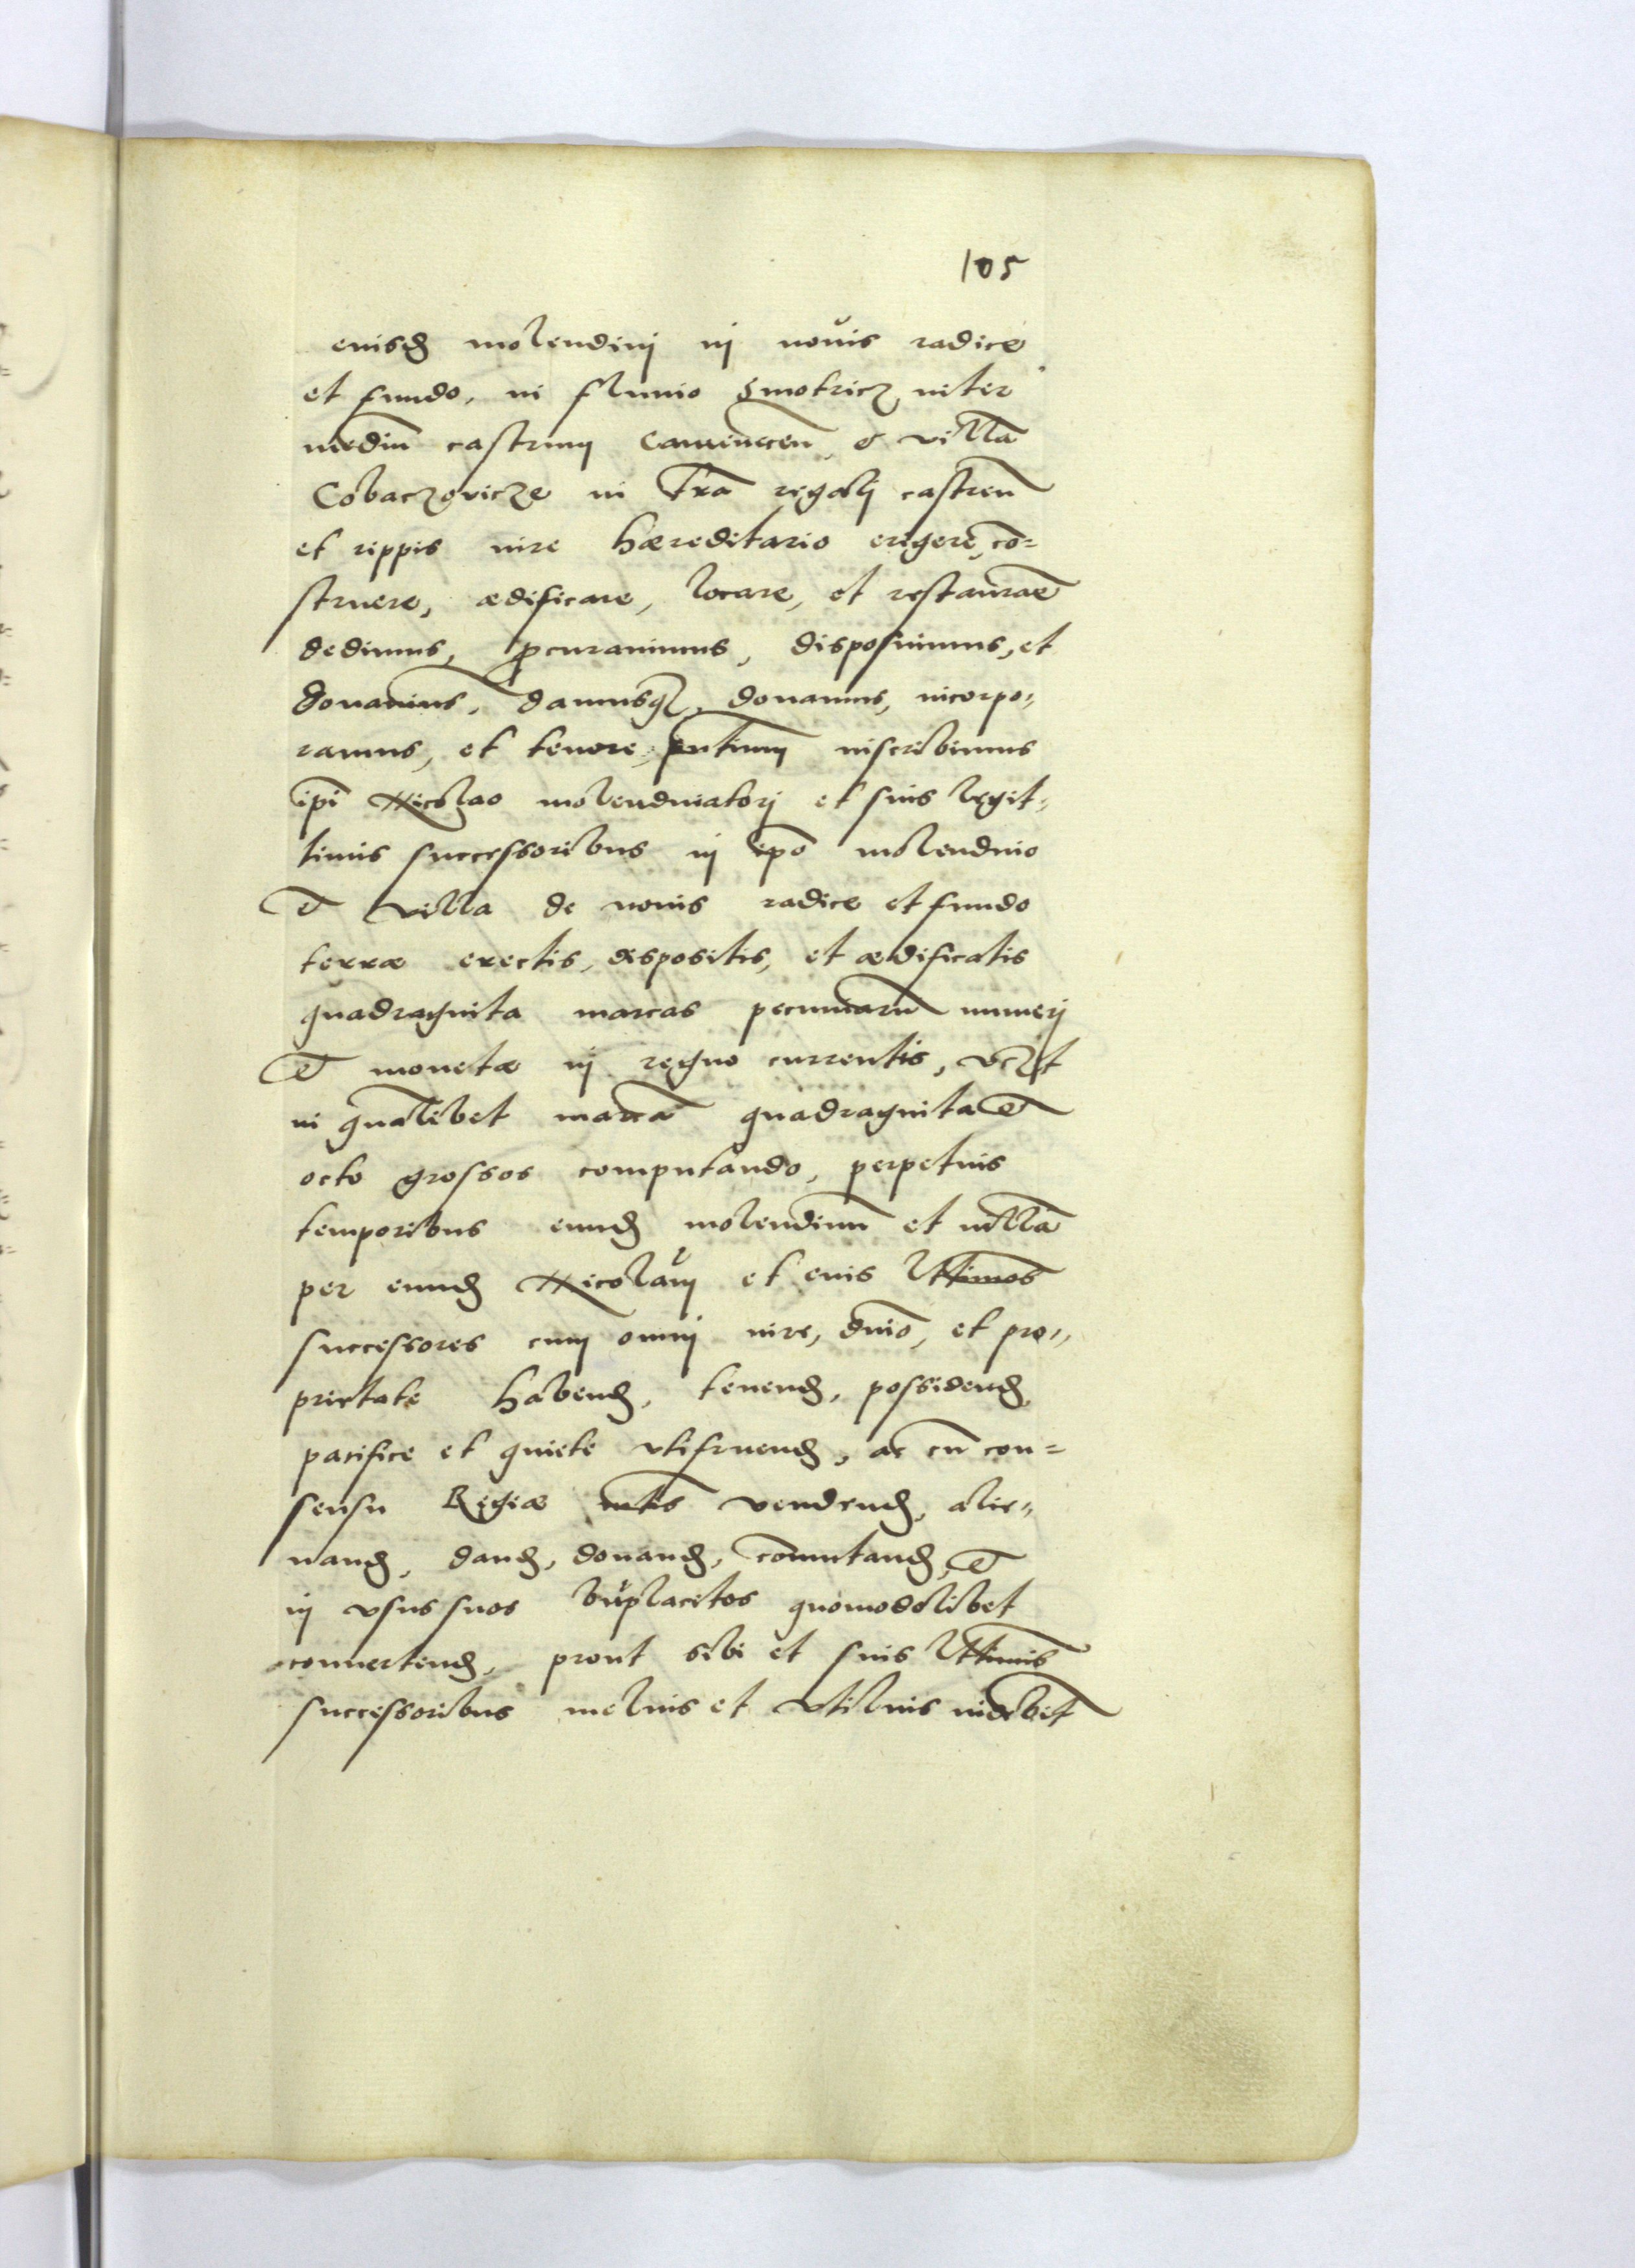 105
eiusd molendinj in nouis radice
et fundo, in fluuio Smotricz inter
mediũ castrum Camenecen̄, & villã
Cobaczovicze in t̃ra regalj castren̄
et rippis iure hæreditario erigere, cõ=
struere, ædificare, locare, et restaurarẽ
dedimus, ꝓcurauimus, disposuimus, et
donauimus, damusq̃, donamus, incorpo=
ramus, et tenore pñtium inscribimus
ip̃i Nicolao molendinatorj et suis legit=
timis successoribus in ip̃o molendino
et villa de nouis radice et fundo
terræ erectis, dispositis, et ædificatis
quadraginta marcas pecuniarũ numerj
et monetæ in regno currentis, vczt
in qual̃ibet marcã quadraginta et
octo grossos computando, perpetuis
temporibus eund molendinũ et villã
per eund Nicolaum et eius l̃ttimos
successores cum omnj iure, dñio, et pro=
prietate habend, tenend, possidend,
pacifice et quiete vtifruend, ac cũ con=
sensu Regiæ mt̃is vendend, alie=
nand, dand, donand, cõmutand, et
in vsus suos bñplacitos quomodolibet
conuertend, prout sibi et suis l̃ttimis
successoribus melius et vtilius videbit̃